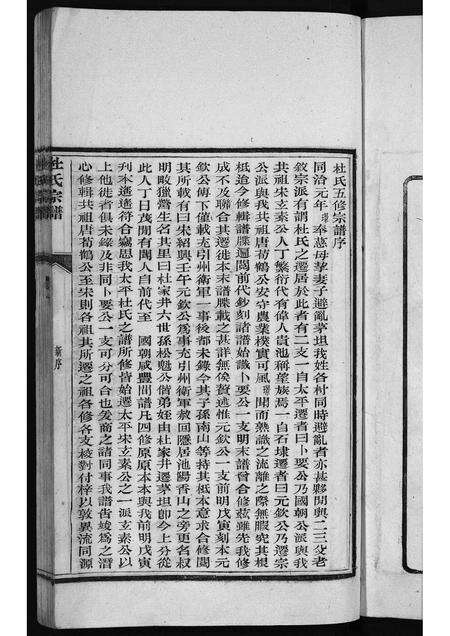 杜氏五修宗譜序
同治元年奉慈母挈妻子避亂茅坦我姓各村同時避亂者亦甚夥閒與二三父老
敘宗派有謂杜氏之遷居於此者有二支一自太平遷者曰卜要公乃國朝公派與我
共祖宋玄素公人丁繁衍代有偉人貴池稱望族焉一自石埭遷者曰元欽公乃遷宗
公派與我共祖唐荀鶴公安守農業樸實可風聞而熟識之流離之際無暇究其根
柢迨今修輯譜牒遍閱前代鈔刻諸譜始識卜要公一支明末譜曾合修茲雖先我修
成不及聯合其遷徙本末譜牒載之甚詳無俟贅述惟元欽公一支前明戊寅刻本元
欽公傳下僅載充引州衛軍一事後都未錄今其子孫南山等持其柢本意求合修閱
其所載有曰宋紹興壬午元欽公爲事充引州衛軍救回隱居池陽香山之旁更名叔
明畋獵營生名其里曰杜家井六世孫松魁公偕弟姪由杜家井遷茅坦卽今上分從
此人丁日茂閒有聞人自前代至 國朝咸豐間譜凡四修原原本本與我前明戊寅
刋本遙遙符合竊思我太平杜氏之譜所修皆始遷太平宋玄素公之一派玄素公以
上他徙者俱未錄及非同卜要公一支可分可合也爰商之諸同事我譜告竣爲之潛
心修輯共祖唐荀鶴公至宋則各祖其所遷之祖各修各支棱對付梓以敦異流同源
杜氏宗譜
新序